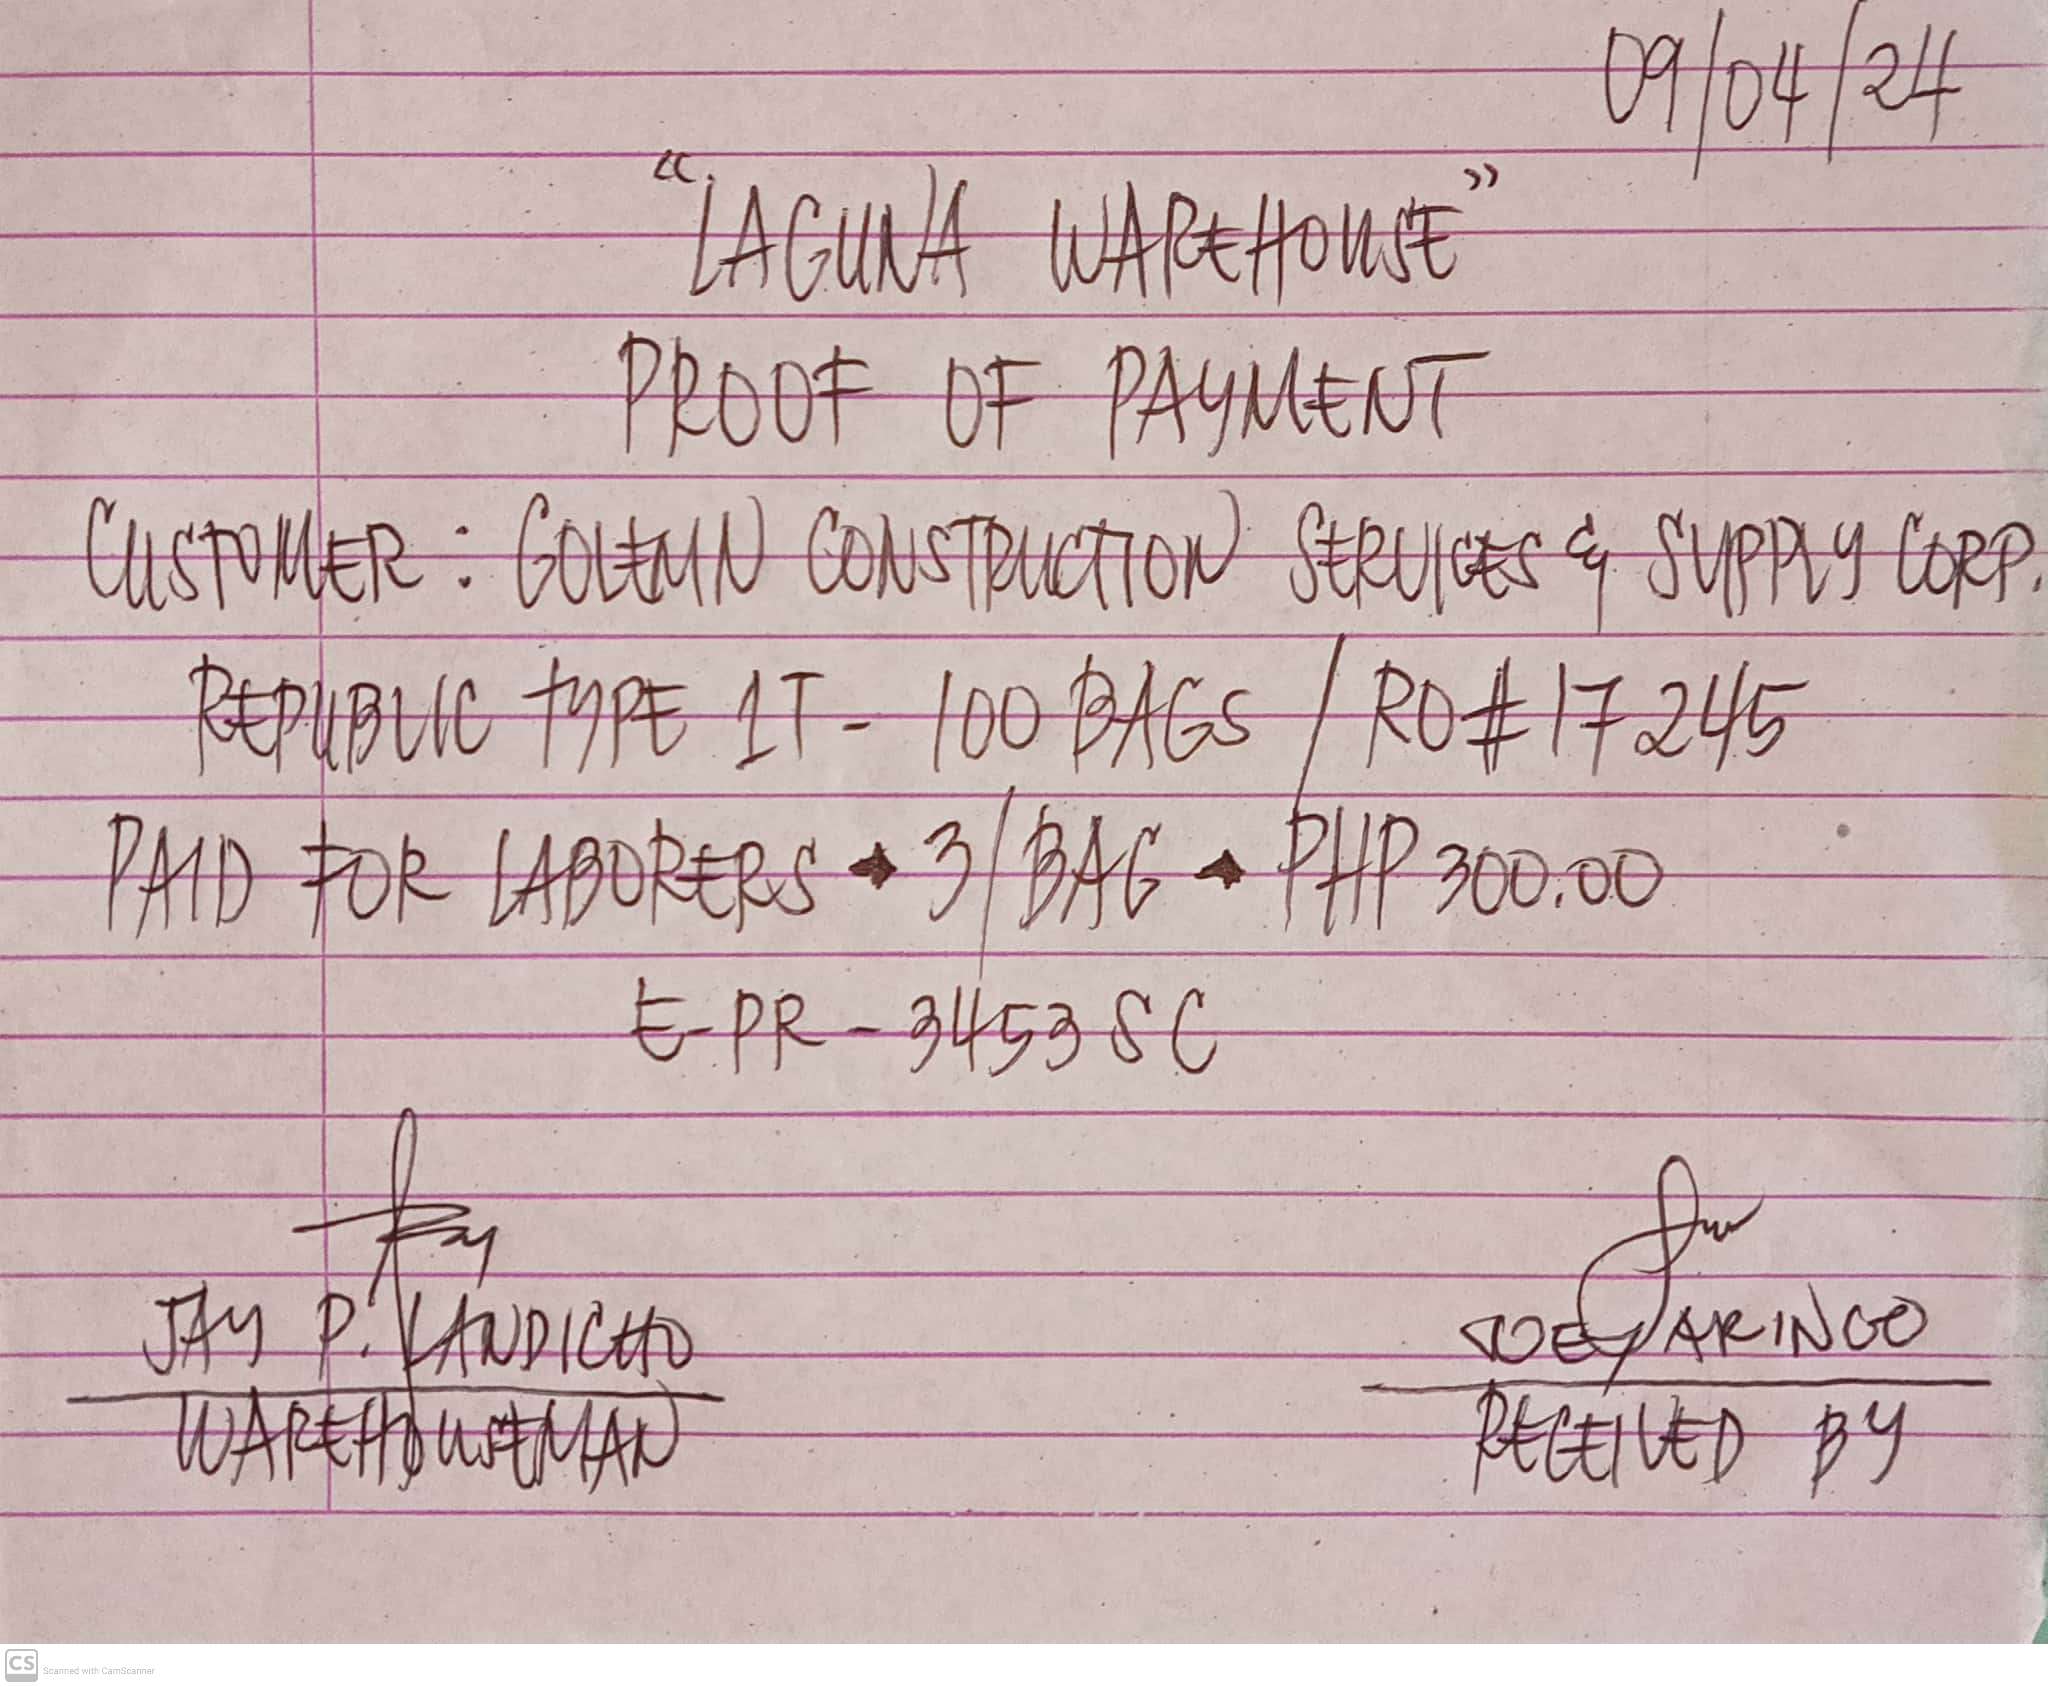 09/04/24
"LAGUNA WAREHOUSE"
PROOF OF PAYMENT
CUSTOMER : GOLEMN CONSTRUCTION SERVICES & SUPPLY CORP.
REPUBLIC TYPE 1T - 100 BAGS / RO# 17245
PAID FOR LABORERS → 3/BAG → PHP 300.00
E-PR - 3453 SC
JAY P. LANDICHO
WAREHOUSEMAN
JOEY ARINGO
RECEIVED BY
CS Scanned with CamScanner